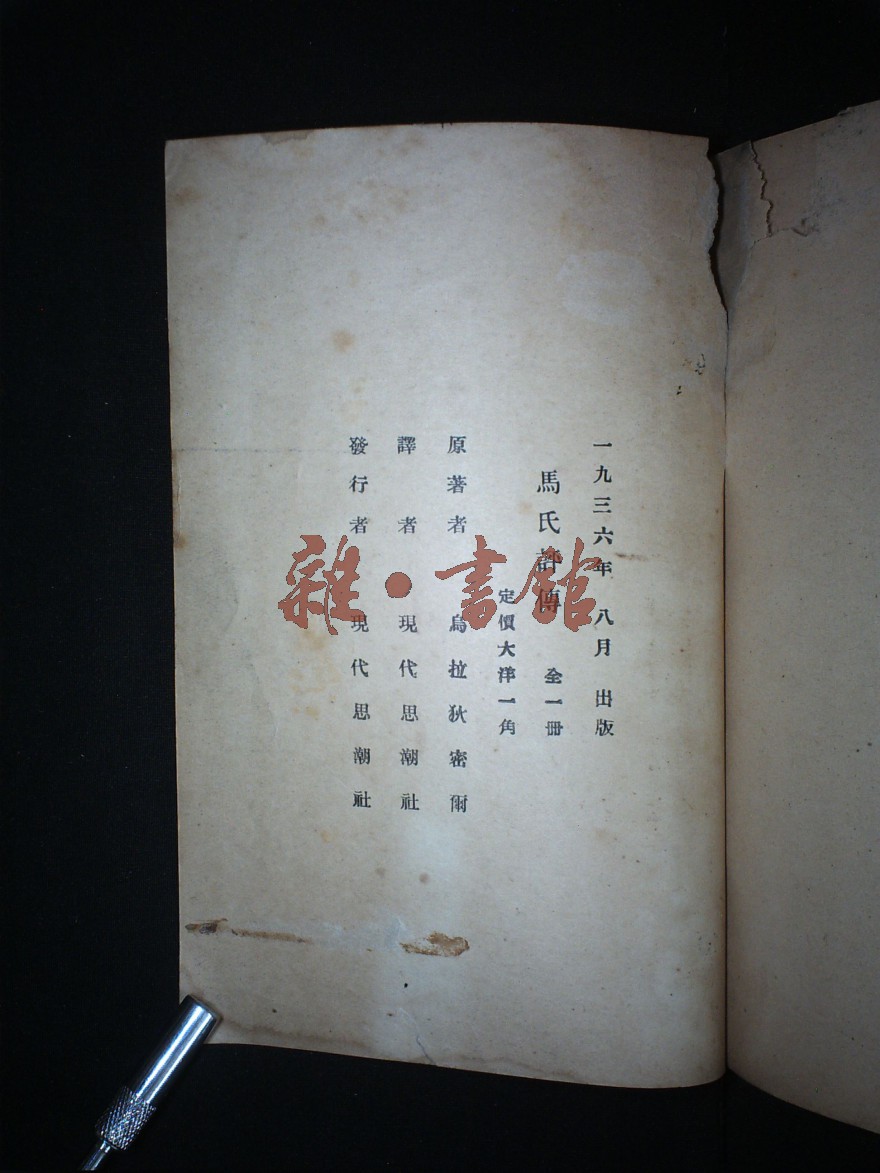 一九三六年八月出版
馬氏評傳 全一冊
定價大洋一角
原著者 烏拉狄密爾
譯者 現代思潮社
發行者 現代思潮社
雜·書館